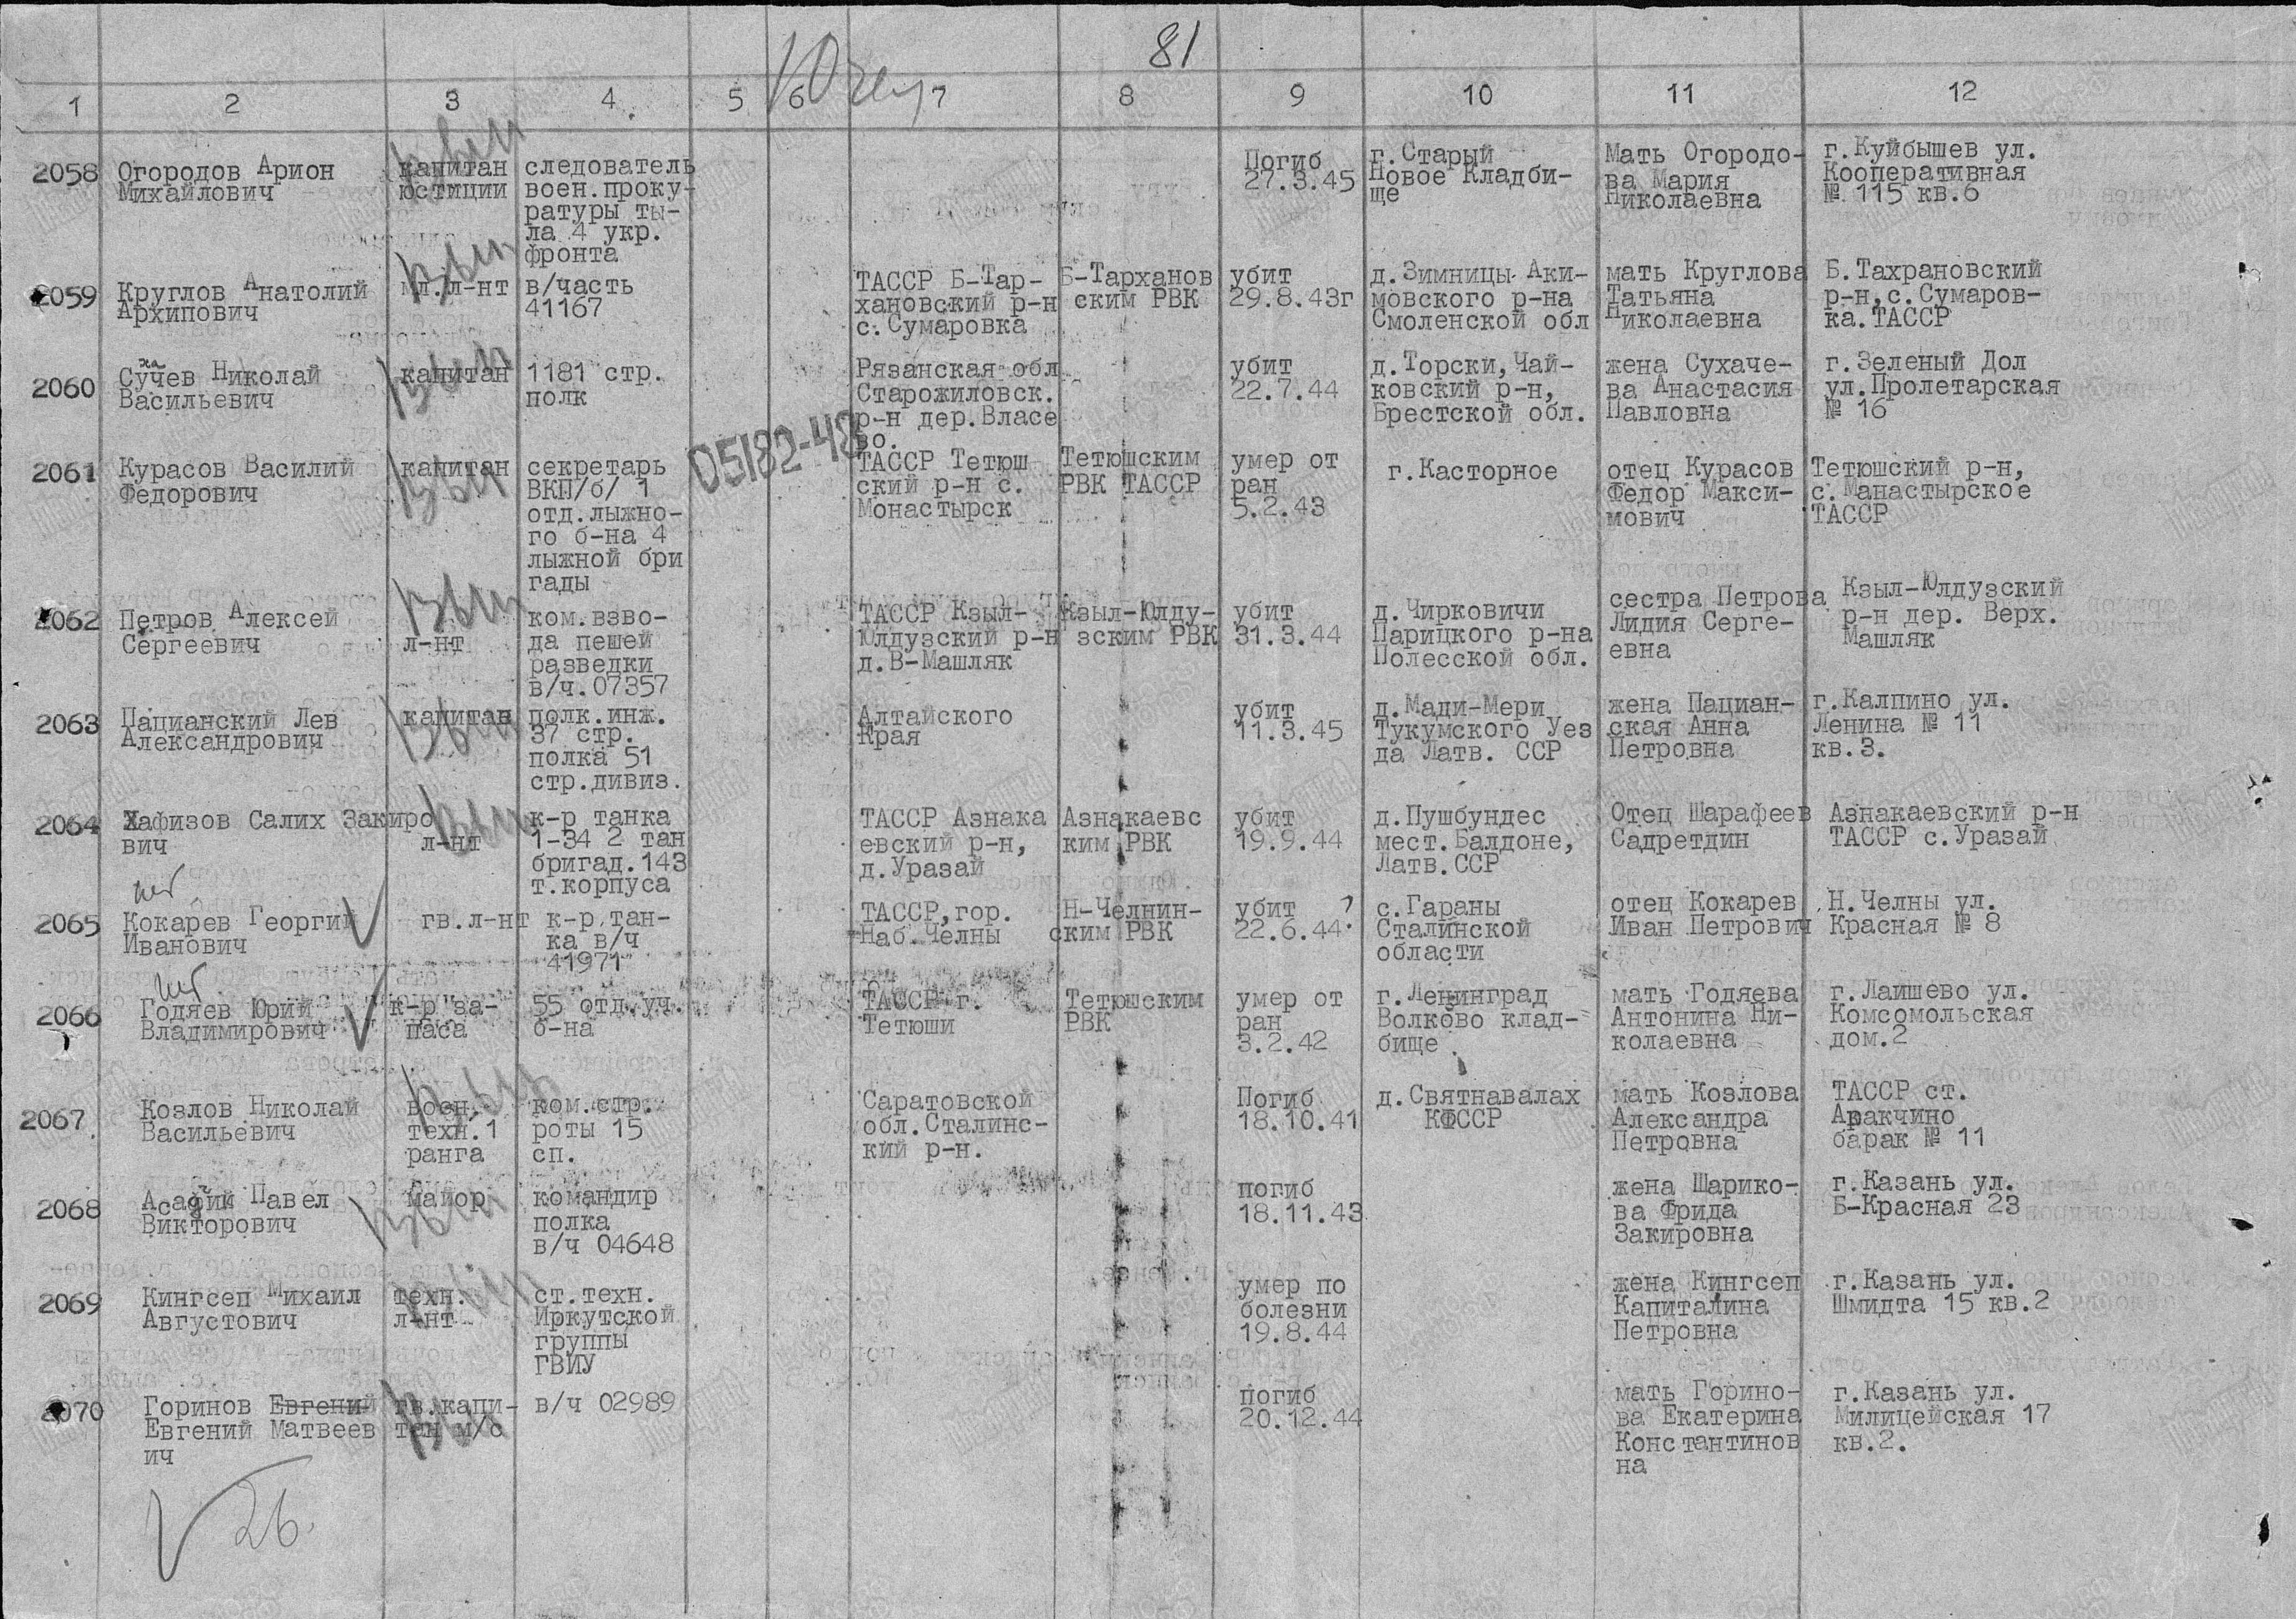 81
1 2 3 4 5 6 7 8 9 10 11 12
2058
Огородов Арион
Михайлович
капитан
юстиции
следователь
воен.проку-
ратуры ты-
ла 4 укр.
фронта
Погиб
27.3.45
г.Старый
Новое Кладби-
ще
Мать Огородо-
ва Мария
Николаевна
г.Куйбышев ул.
Кооперативная
№ 115 кв.6
2059
Круглов Анатолий
Архипович
мл.л-нт
в/часть
41167
ТАССР Б-Тар-
хановский р-н
с.Сумаровка
Б-Тарханов
ским РВК
убит
29.8.43г
д.Зимницы Аки-
мовского р-на
Смоленской обл
мать Круглова
Татьяна
Николаевна
Б.Тахрановский
р-н,с.Сумаров-
ка.ТАССР
2060
ха
Сучев Николай
Васильевич
капитан
1181 стр.
полк
Рязанская обл
Старожиловск.
р-н дер.Власе
во.
убит
22.7.44
д.Торски,Чай-
ковский р-н,
Брестской обл.
жена Сухаче-
ва Анастасия
Павловна
г.Зеленый Дол
ул.Пролетарская
№ 16
2061
Курасов Василий
Федорович
капитан
секретарь
ВКП/б/ 1
отд.лыжно-
го б-на 4
лыжной бри
гады
05182-48
ТАССР Тетюш
ский р-н с.
Монастырск
Тетюшским
РВК ТАССР
умер от
ран
5.2.43
г.Касторное
отец Курасов
Федор Макси-
мович
Тетюшский р-н,
с.Манастырское
ТАССР
2062
Петров Алексей
Сергеевич
л-нт
ком.взво-
да пешей
разведки
в/ч.07357
ТАССР Кзыл-
Юлдузский р-н
д.В-Машляк
Кзыл-Юлду-
зским РВК
убит
31.3.44
д.Чирковичи
Парицкого р-на
Полесской обл.
сестра Петрова
Лидия Серге-
евна
Кзыл-Юлдузский
р-н дер. Верх.
Машляк
2063
Пацианский Лев
Александрович
капитан
полк.инж.
37 стр.
полка 51
стр.дивиз.
Алтайского
Края
убит
11.3.45
д.Мади-Мери
Тукумского Уез
да Латв. ССР
жена Пациан-
ская Анна
Петровна
г.Калпино ул.
Ленина № 11
кв.3.
2064
Хафизов Салих Закиро
вич
л-нт
к-р танка
1-34 2 тан
бригад.143
т.корпуса
ТАССР Азнака
евский р-н,
д.Уразай
Азнакаевс
ким РВК
убит
19.9.44
д.Пушбундес
мест.Балдоне,
Латв.ССР
Отец Шарафеев
Садретдин
Азнакаевский р-н
ТАССР с.Уразай
2065
Кокарев Георгий
Иванович
гв.л-нт
к-р тан-
ка в/ч
41971
ТАССР,гор.
Наб.Челны
Н-Челнин-
ским РВК
убит ?
22.6.44
с.Гараны
Сталинской
области
отец Кокарев
Иван Петрович
Н.Челны ул.
Красная № 8
2066
Годяев Юрий
Владимирович
к-р за-
паса
55 отд.уч.
б-на
ТАССР г.
Тетюши
Тетюшским
РВК
умер от
ран
3.2.42
г.Ленинград
Волково клад-
бище
мать Годяева
Антонина Ни-
колаевна
г.Лаишево ул.
Комсомольская
дом.2
2067
Козлов Николай
Васильевич
воен.
техн.1
ранга
ком.стр.
роты 15
сп.
Саратовской
обл.Сталинс-
кий р-н.
Погиб
18.10.41
д.Святнавалах
КФССР
мать Козлова
Александра
Петровна
ТАССР ст.
Аракчино
барак № 11
2068
Асафий Павел
Викторович
майор
командир
полка
в/ч 04648
погиб
18.11.43
жена Шарико-
ва Фрида
Закировна
г.Казань ул.
Б-Красная 23
2069
Кингсеп Михаил
Августович
техн.
л-нт
ст.техн.
Иркутской
группы
ГВИУ
умер по
болезни
19.8.44
жена Кингсеп
Капиталина
Петровна
г.Казань ул.
Шмидта 15 кв.2
2070
Горинов Евгений
Евгений Матвеев
ич
гв.капи-
тан м/с
в/ч 02989
погиб
20.12.44
мать Горино-
ва Екатерина
Константинов
на
г.Казань ул.
Милицейская 17
кв.2.
26